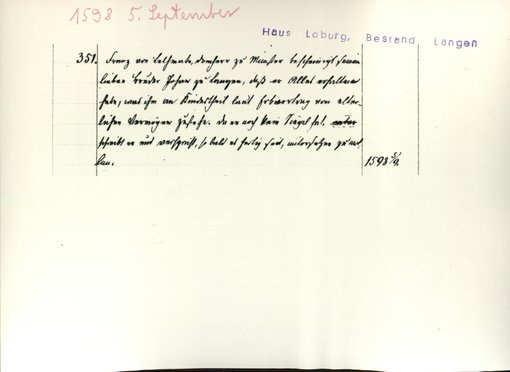 1598 5. September
Haus Loburg, Bestand Langen
351. Franz von Letmate, domherr zu Münster bescheinigt seinem
lieben Bruder Johan zu Langen, daß er Alles erhalten
habe, was ihm an Kindestheil laut Erbvertrag von elter-
lichem Vermögen zustehe. da er noch kein Siegel hat, unter
schreibt er und verspricht, so bald es fertig sein, untersiegeln zu wol
len. 1598 5/9.